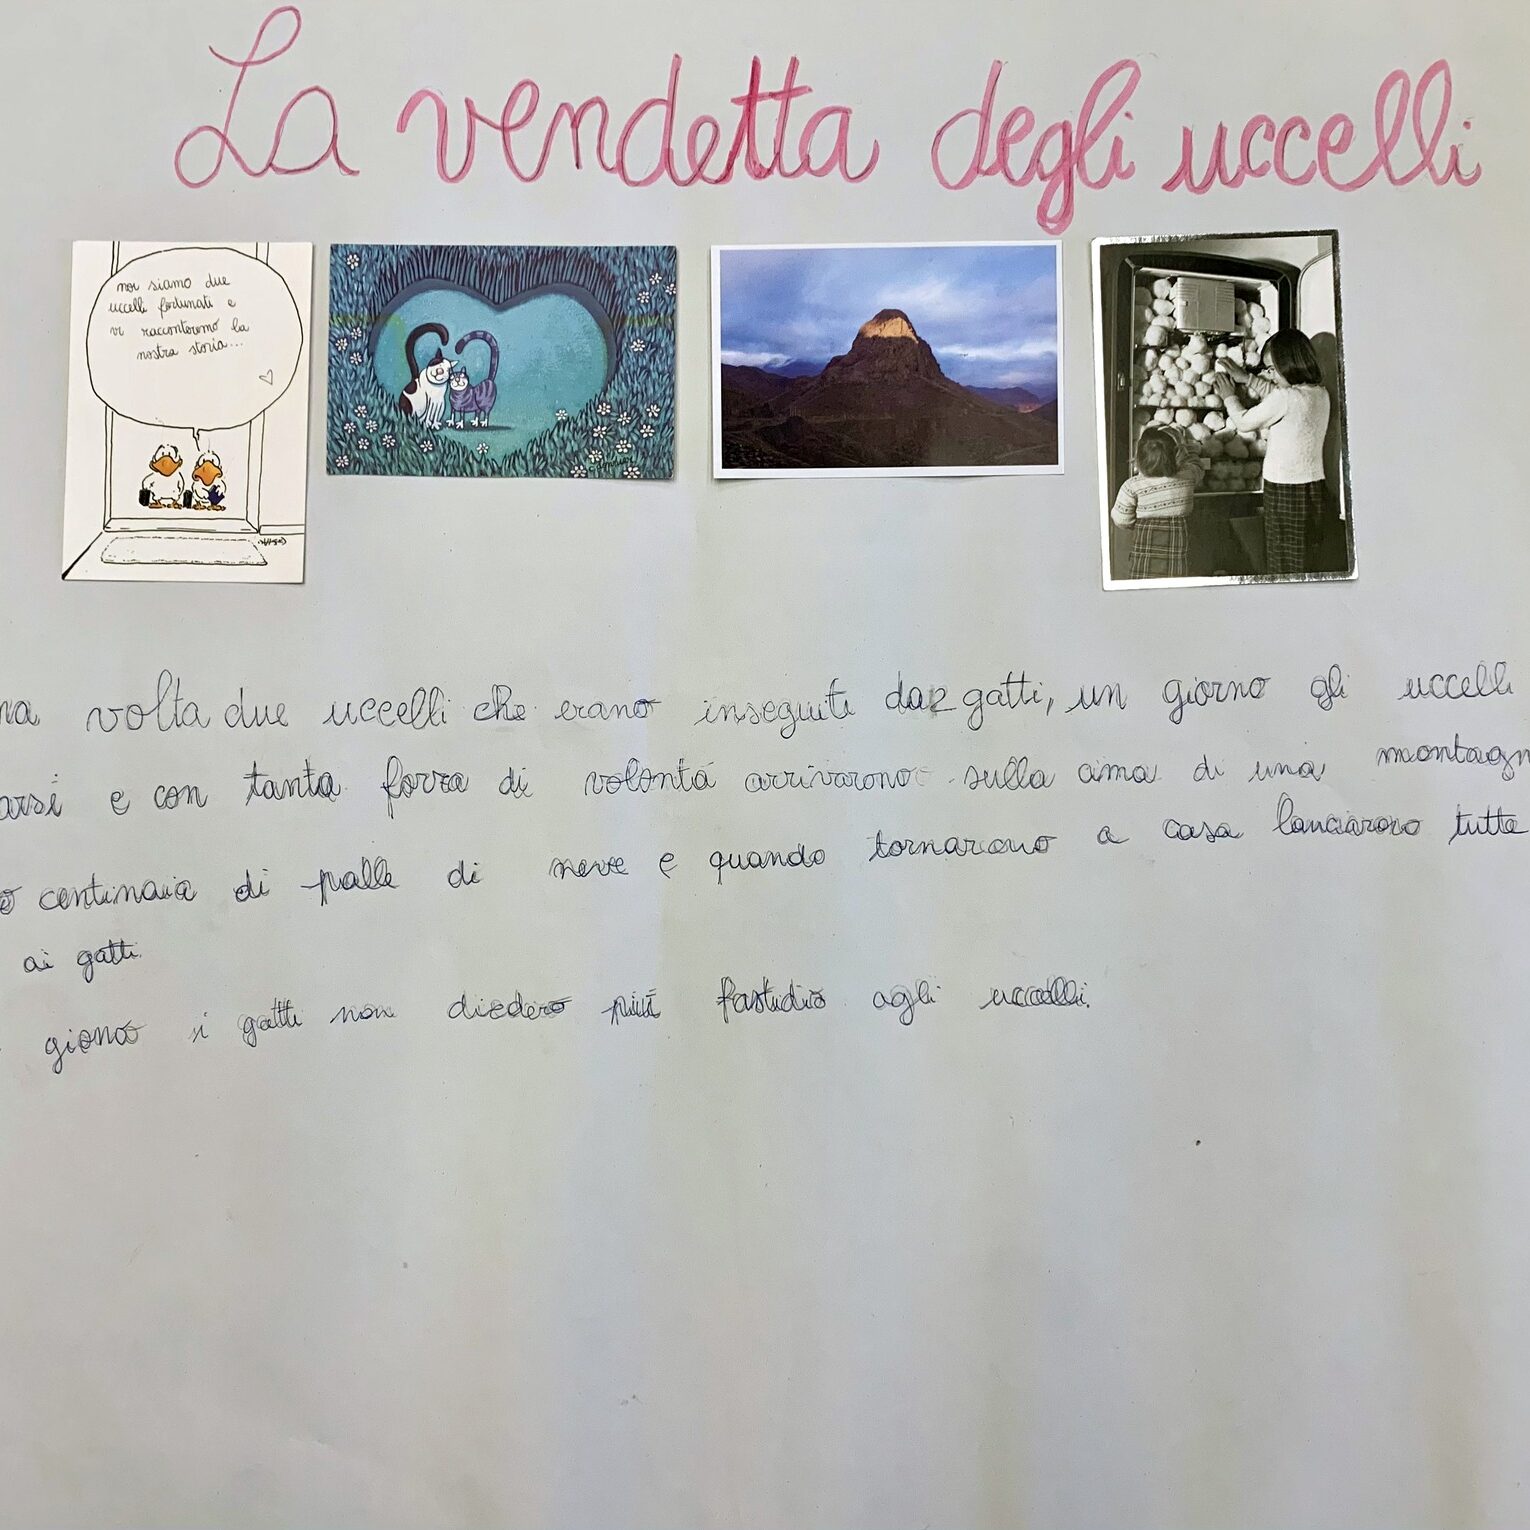 La vendetta degli uccelli
noi siamo due
uccelli fortunati e
vi racconteremo la
nostra storia...
na volta due uccelli che erano inseguiti da 2 gatti, un giorno gli uccelli
arsi e con tanta forza di volontá arrivarono sulla cima di una montagn
o centinaia di palle di neve e quando tornarono a casa lanciarono tutte
ai gatti.
giorno i gatti non diedero più fastidio agli uccelli.